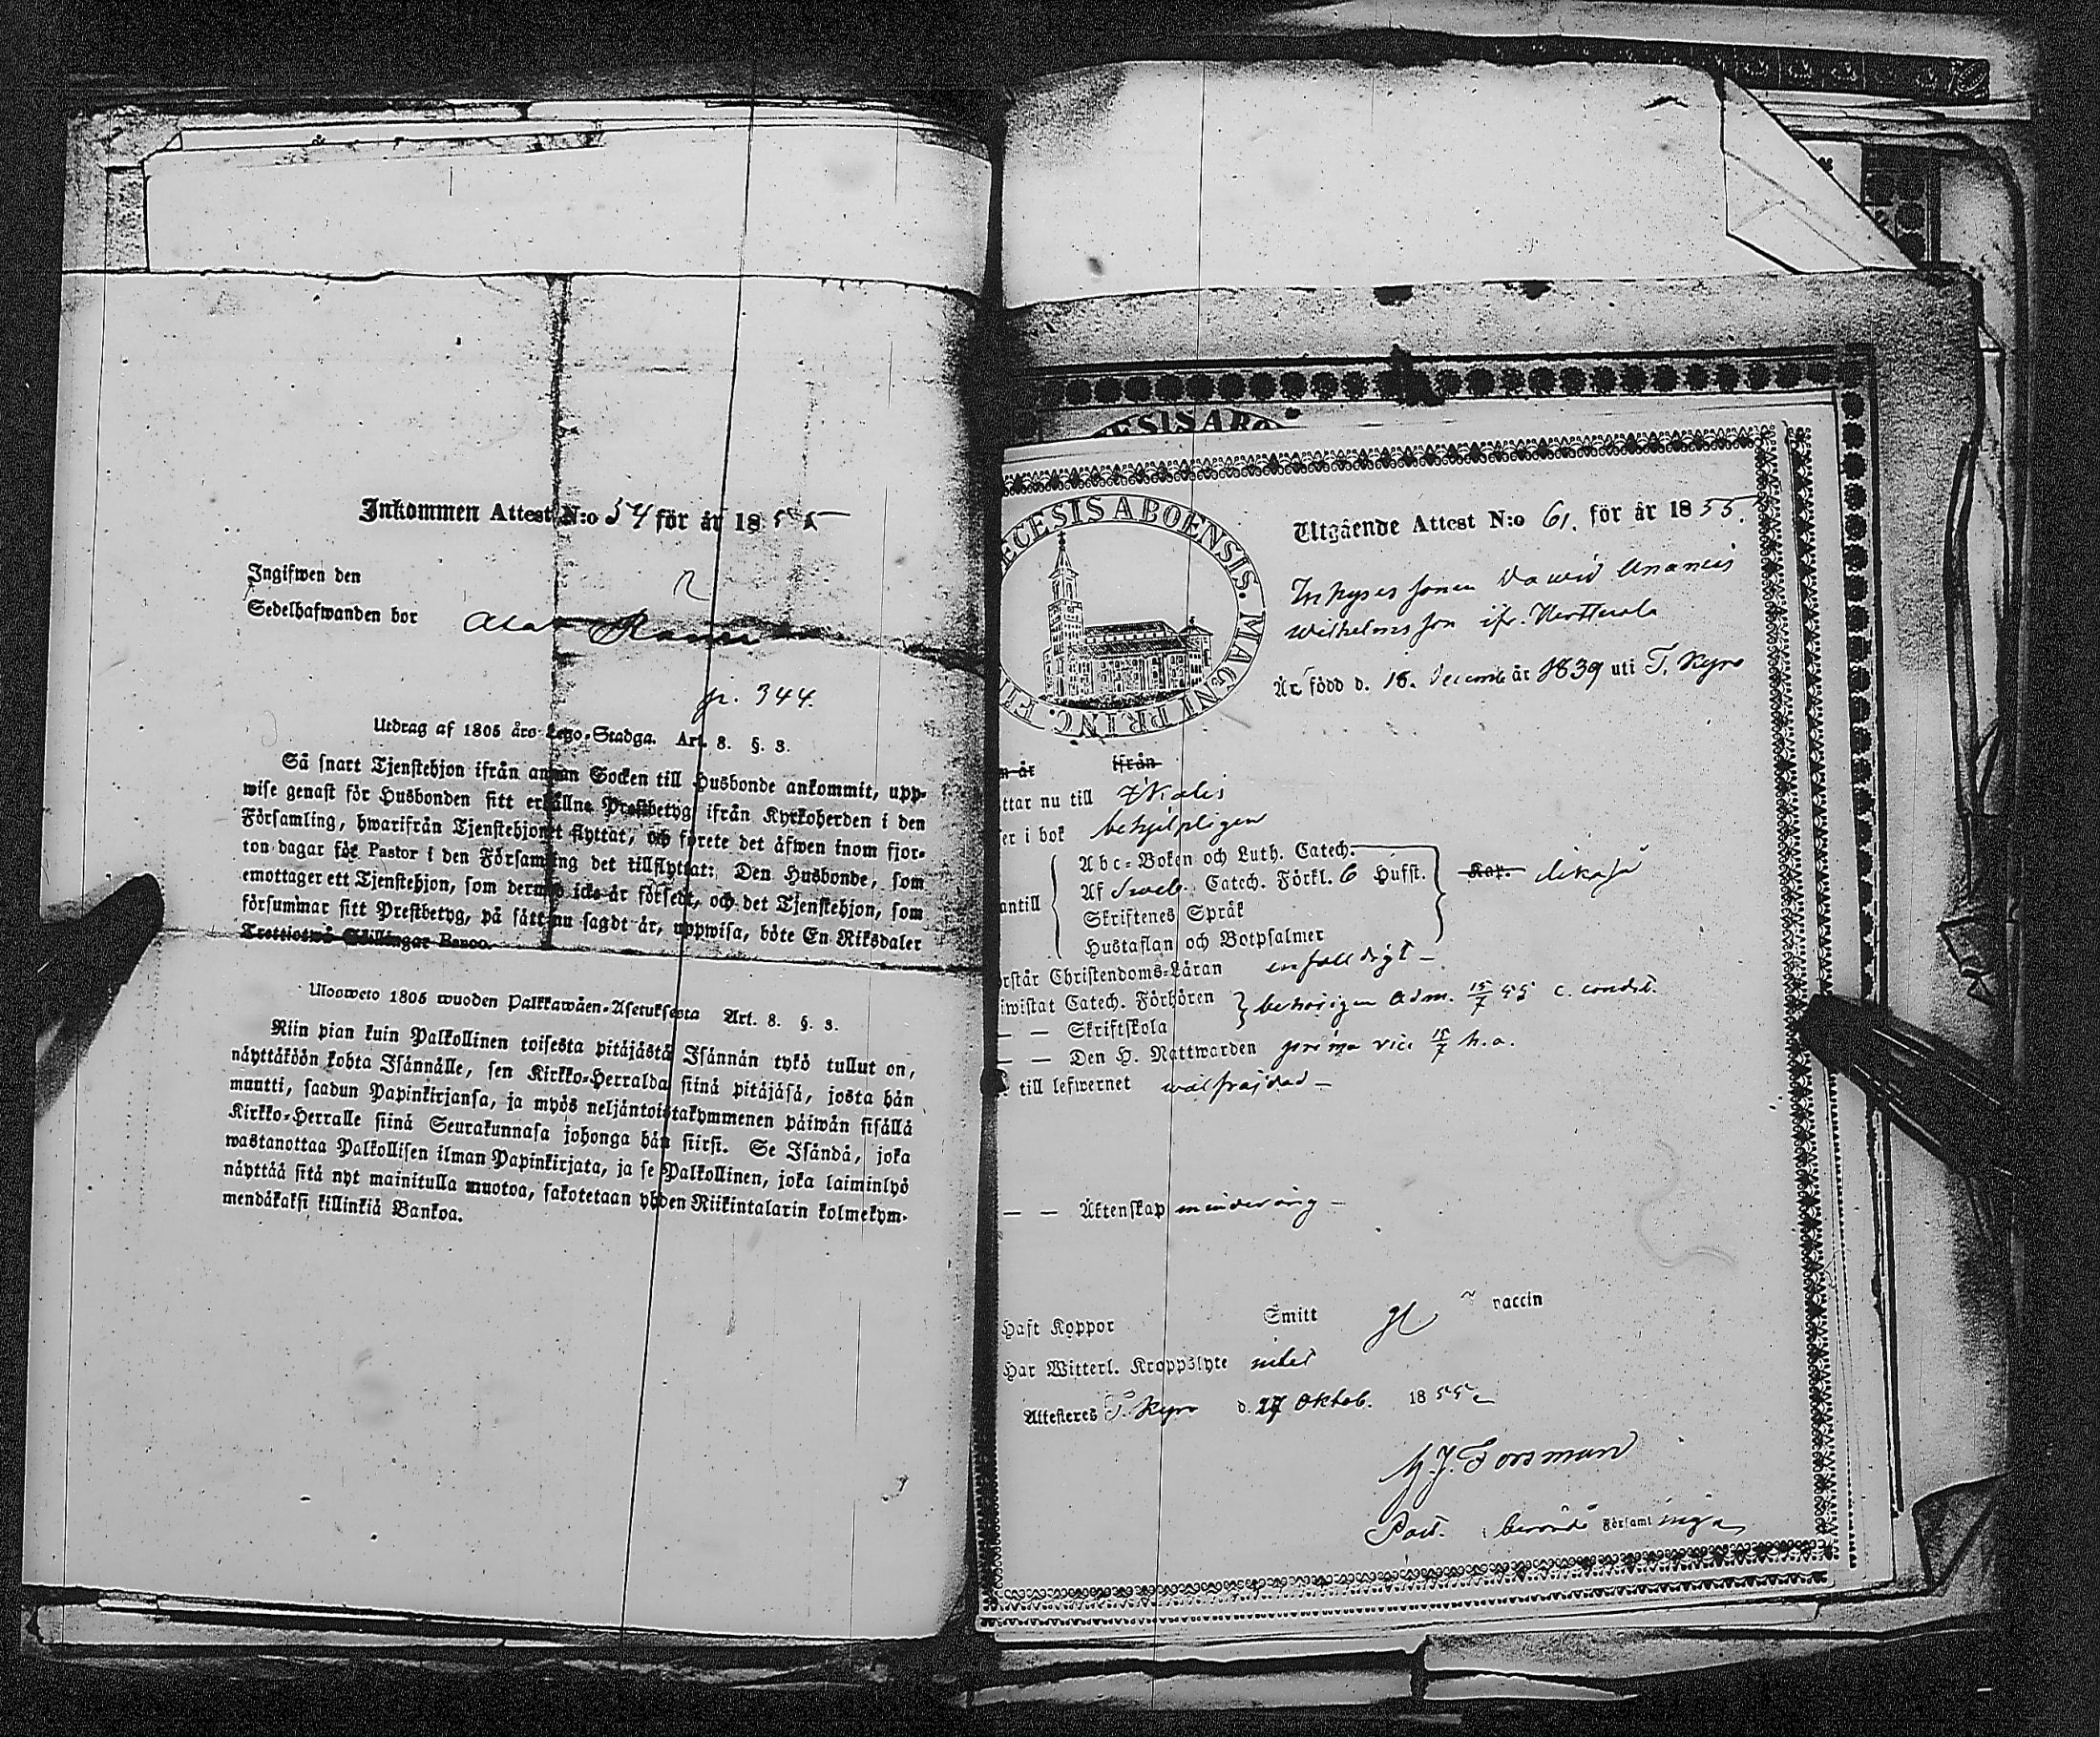 Inkommen Attest N:o 54 för år 1855
Ingifwen den
Sedelhafwanden bor
p. 344.
Utdrag af 1805 års Lego-Stadga. Art. 8. §. 3.
Så snart Tjenstehjon ifrån annan Socken till Husbonde ankommit, upp-
wise genast för Husbonden sitt erhållne Prestbetyg ifrån Kyrkoherden i den
Församling, hwarifrån Tjenstehjonet flyttat, och förete det äfwen inom fjor-
ton dagar för Pastor i den Församling det tillflyttat: Den Husbonde, som
emottager ett Tjenstehjon, som dermed icke är försedt, och det Tjenstehjon, som
försummar sitt Prestbetyg, på sätt nu sagdt är, uppwisa, böte En Riksdaler
Trettiotwå Skillingar Banco.
Ulosweto 1805 wuoden Palkkawäen-Asetuksesta Art. 8. §. 3.
Niin pian kuin Palkollinen toisesta pitäjästä Isännän tykö tullut on,
näyttäköön kohta Isännälle, sen Kirkko-Herralda siinä pitäjäsä, josta hän
muutti, saadun Papinkirjansa, ja myös neljäntoistakymmenen päiwän sisällä
Kirkko-Herralle siinä Seurakunnasa johonga hän siirsi. Se Isändä, joka
wastanottaa Palkollisen ilman Papinkirjata, ja se Palkollinen, joka laiminlyö
näyttää sitä nyt mainitulla muotoa, sakotetaan yhden Riikintalarin kolmekym-
mendäkaksi killinkiä Bankoa.
ECESIS ABO
ECESIS ABOENSIS. MAGNI PRINC. FI
Utgående Attest N:o 61. för år 1855.
Inhyses sonen David Ananias
Wilhelmsson ifr.
Är född d. 18. Decemb år 1839 uti T. Kyro
n år ifrån
ttar nu till
er i bok behjelpligen
Abc-Boken och Luth. Catech.
Af Sweb. Catech. Förkl. 6 Hufst. Kap. likaså
antill
Skriftenes Språk
Hustaflan och Botpsalmer
rstår Christendoms-Läran enfalldigt –
iwistat Catech. Förhören behörigen adm. 15/7 55 c. condit.
— — Skriftskola
— — Den H. Nattwarden prima vice 15/7 h.a.
till lefwernet wälfrajdad –
— — Äktenskap minderårig –
Haft Koppor Smitt vaccin
Har Witterl. Kroppslyte intet
Attesteres T. Kyro d. 27 Oktob. 1855
Forsman
Past. i berörde Församlingar